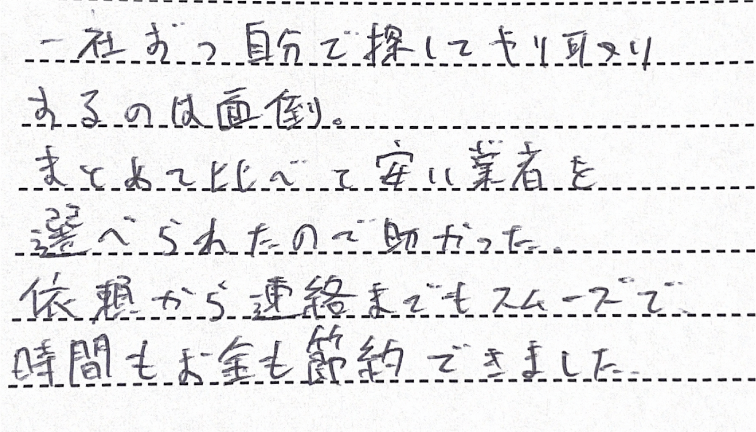 一社ずつ自分で探してやり取り
するのは面倒。
まとめて比べて安い業者を
選べられたので助かった。
依頼から連絡までもスムーズで
時間もお金も節約できました。